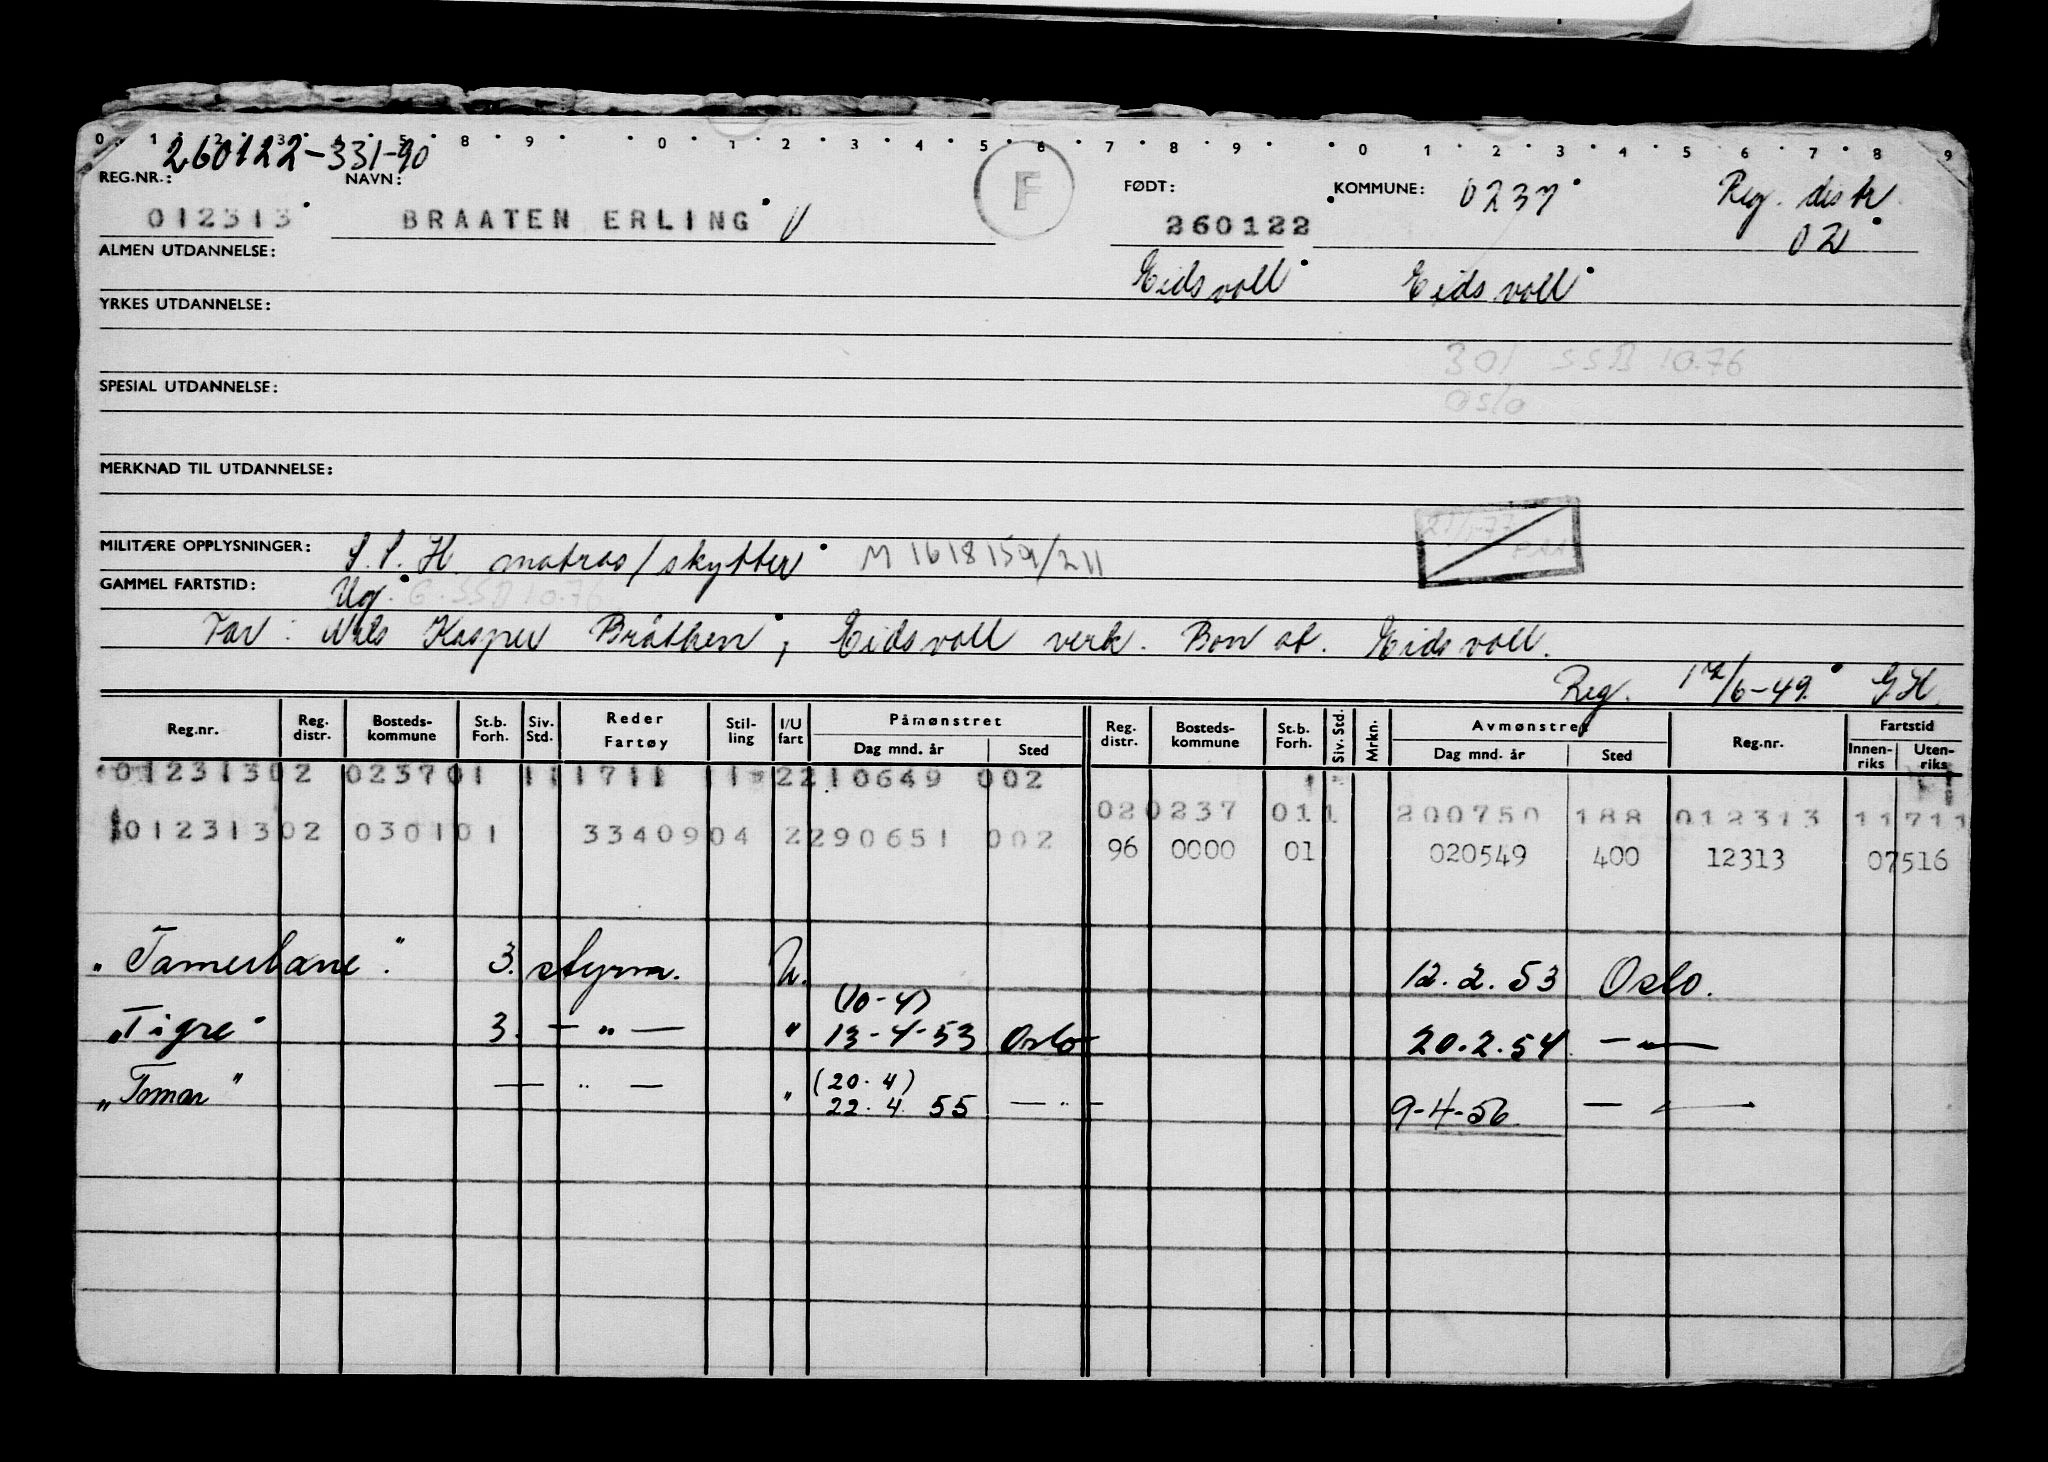 0 1 2 3 4 5 8 9 0 1 2 3 4 5 6 7 8 9 0 1 2 3 4 5 6 7 8 9
260122-331-90
REG.NR.: NAVN: F FØDT: KOMMUNE: 0237 Reg. distr.
012313 BRAATEN ERLING 260122 02
ALMEN UTDANNELSE: Eidsvoll Eidsvoll
YRKES UTDANNELSE:
301 SSB 10.76
Oslo
SPESIAL UTDANNELSE:
MERKNAD TIL UTDANNELSE:
MILITÆRE OPPLYSNINGER: S.S.H. matros/skytter M 1618159/211
GAMMEL FARTSTID: Ug. 6. SSB 10.76
Far: Nils Kasper Bråthen; Eidsvoll verk. Bon st. Eidsvoll.
Reg. /6-49. GH
Reg.nr. Reg. distr. Bosteds-kommune St.b. Forh. Siv. Std. Reder Fartøy Stil-ling I/U fart Påmønstret Dag mnd. år Sted Reg. distr. Bosteds-kommune St.b. Forh. Siv. Std. Mrkn. Avmønstret Dag mnd. år Sted Reg.nr. Fartstid Innen-riks Uten-riks
01231302 023701 111711 11 2210649 002
020237 011 200750 188 012313 11711
01231302 030101 3340904 2290651 002
96 0000 01 020549 400 12313 07516
"Tamerlane" 3. styrm. U. 12.2.53 Oslo.
(10-4)
"Tigre" 3. — " — " 13-4-53 Oslo 20.2.54 — " —
(20.4)
"Tomar" — " — " 22.4.55 — " — 9-4-56. — " —